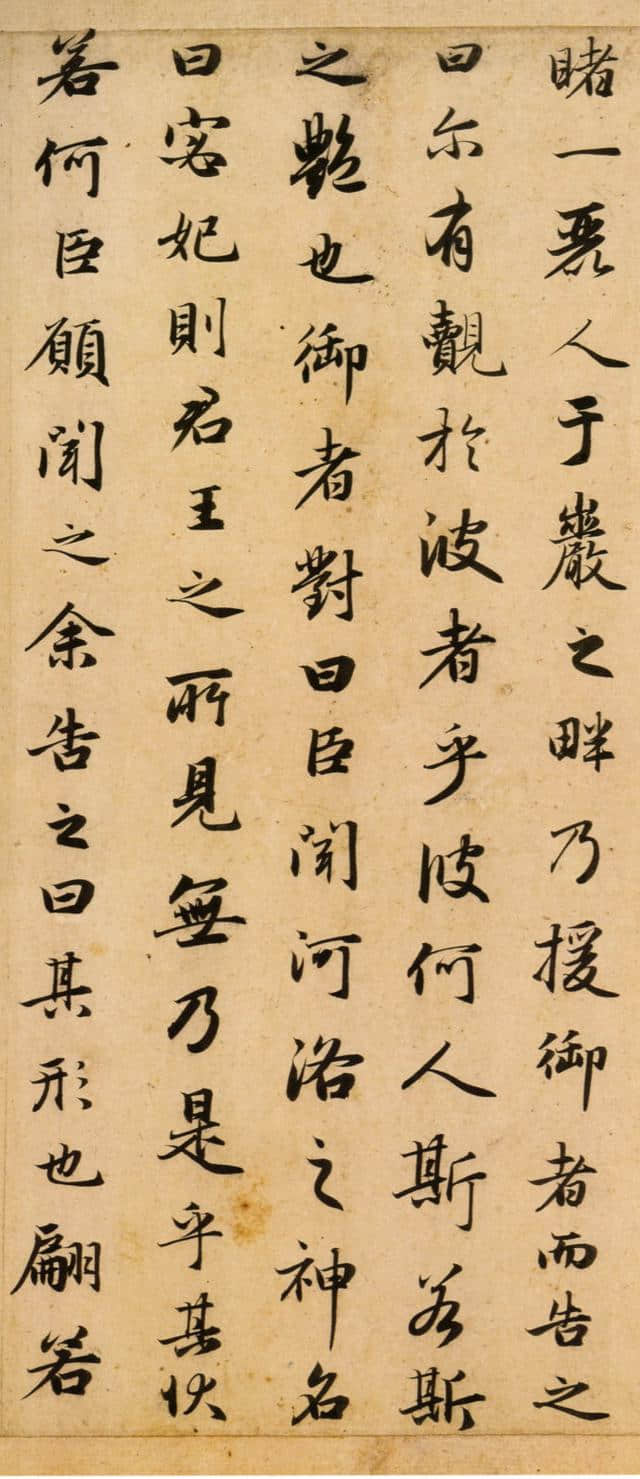 睹一麗人于巖之畔乃援御者而告之
曰尓有覿於彼者乎彼何人斯若斯
之艷也御者對曰臣聞河洛之神名
曰宓妃則君王之所見無乃是乎其狀
若何臣願聞之余告之曰其形也翩若